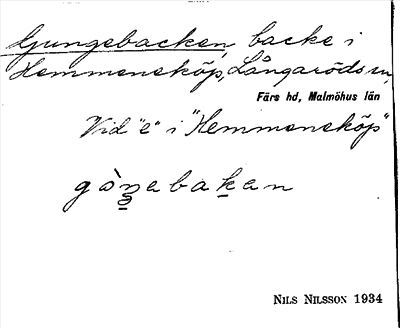 Gungebacken, backe i
Hemmensköp, Långaröds sn,
Färs hd, Malmöhus län
Vid "e" i "Hemmensköp"
gàŋebaken
NILS NILSSON 1934